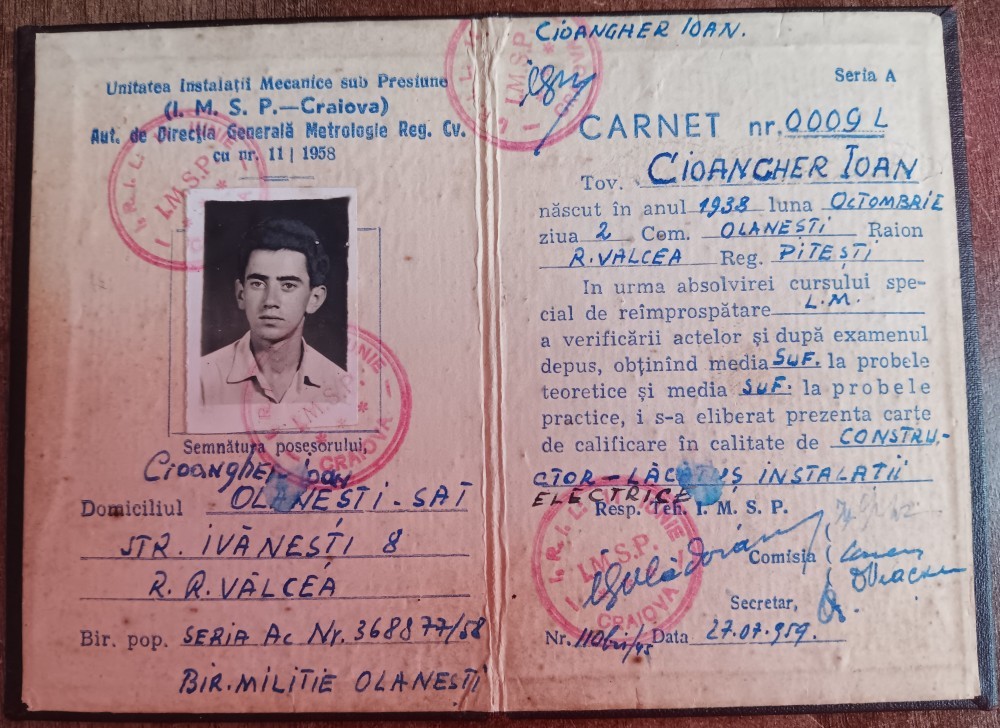 Unitatea Instalații Mecanice sub Presiune
(I. M. S. P.—Craiova)
Aut. de Direcția Generală Metrologie Reg. Cv.
cu nr. 11 | 1958
I.M.S.P.
Semnătura posesorului,
Cioangher Ioan
Domiciliul OLANEȘTI-SAT
STR. IVĂNEȘTI 8
R. R. VÂLCEA
Bir. pop. SERIA AC Nr. 368877/58
BIR. MILITIE OLANESTI
CIOANGHER IOAN.
I.M.S.P.
Seria A
CARNET nr. 0009 L
Tov. CIOANGHER IOAN
născut în anul 1938 luna OCTOMBRIE
ziua 2 Com. OLANEȘTI Raion
R. VALCEA Reg. PITEȘTI
In urma absolvirei cursului spe-
cial de reîmprospătare L.M.
a verificării actelor și după examenul
depus, obținînd media SUF. la probele
teoretice și media SUF. la probele
practice, i s-a eliberat prezenta carte
de calificare în calitate de CONSTRU-
CTOR-LĂCĂTUȘ INSTALATII
ELECTRICE
Resp. Teh. I. M. S. P.
Comisia
Secretar,
I.M.S.P.
CRAIOVA
Nr. Data 27.07.959.